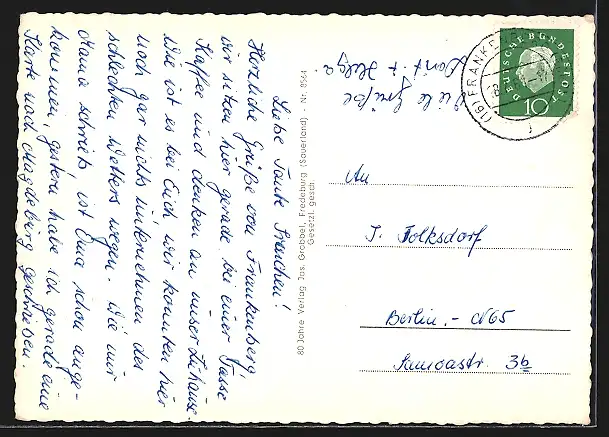 Liebe Tante Trenchen!
Herzliche Grüße von Frankenberg,
wir sitzen hier gerade bei einer Tasse
Kaffee und denken an unser Zuhause.
Wie ist es bei Euch, wir konnten hier
noch gar nichts unternehmen des
schlechten Wetters wegen. Wie mir
Mama schrieb, ist Oma schon ange-
kommen, gestern habe ich gerade eine
Karte nach Magdeburg geschrieben.
Viele Grüße
Dorit + Helga
80 Jahre Verlag Jos. Grobbel, Fredeburg (Sauerland) - Nr. 8564
Gesetzl. gesch.
(16) FRANKENBERG
DEUTSCHE BUNDESPOST
10
An
J. Folksdorf
Berlin.- N65
Samoastr. 3b